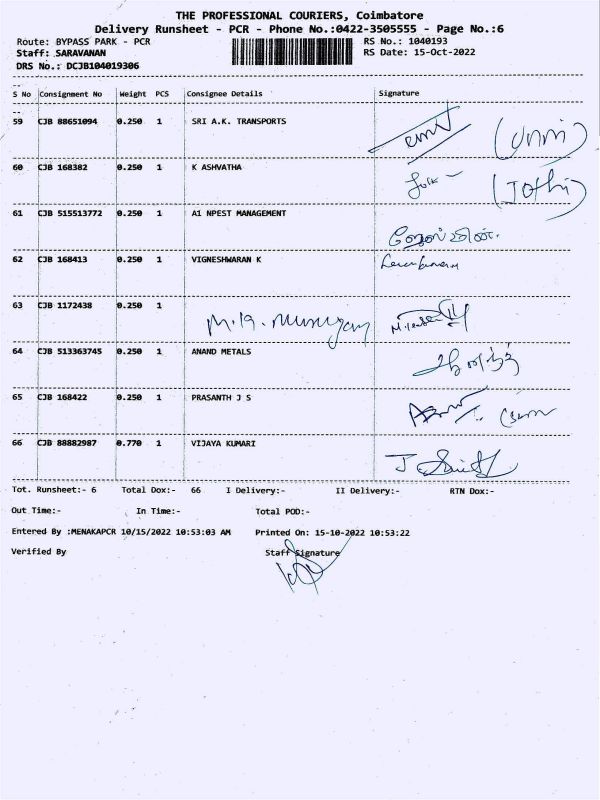 THE PROFESSIONAL COURIERS, Coimbatore
Delivery Runsheet - PCR - Phone No.:0422-3505555 - Page No.:6
Route: BYPASS PARK - PCR RS No.: 1040193
Staff: SARAVANAN RS Date: 15-Oct-2022
DRS No.: DCJB104019306
S No Consignment No Weight PCS Consignee Details Signature
59 CJB 88651094 0.250 1 SRI A.K. TRANSPORTS
60 CJB 168382 0.250 1 K ASHVATHA (Jothi)
61 CJB 515513772 0.250 1 A1 NPEST MANAGEMENT
62 CJB 168413 0.250 1 VIGNESHWARAN K
63 CJB 1172438 0.250 1 M.K. Murugan
64 CJB 513363745 0.250 1 ANAND METALS
65 CJB 168422 0.250 1 PRASANTH J S
66 CJB 88882987 0.770 1 VIJAYA KUMARI
Tot. Runsheet:- 6 Total Dox:- 66 I Delivery:- II Delivery:- RTN Dox:-
Out Time:- In Time:- Total POD:-
Entered By :MENAKAPCR 10/15/2022 10:53:03 AM Printed On: 15-10-2022 10:53:22
Verified By Staff Signature